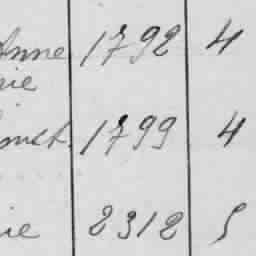 Anne 1792 4
rie
1799 4
rie 2312 5